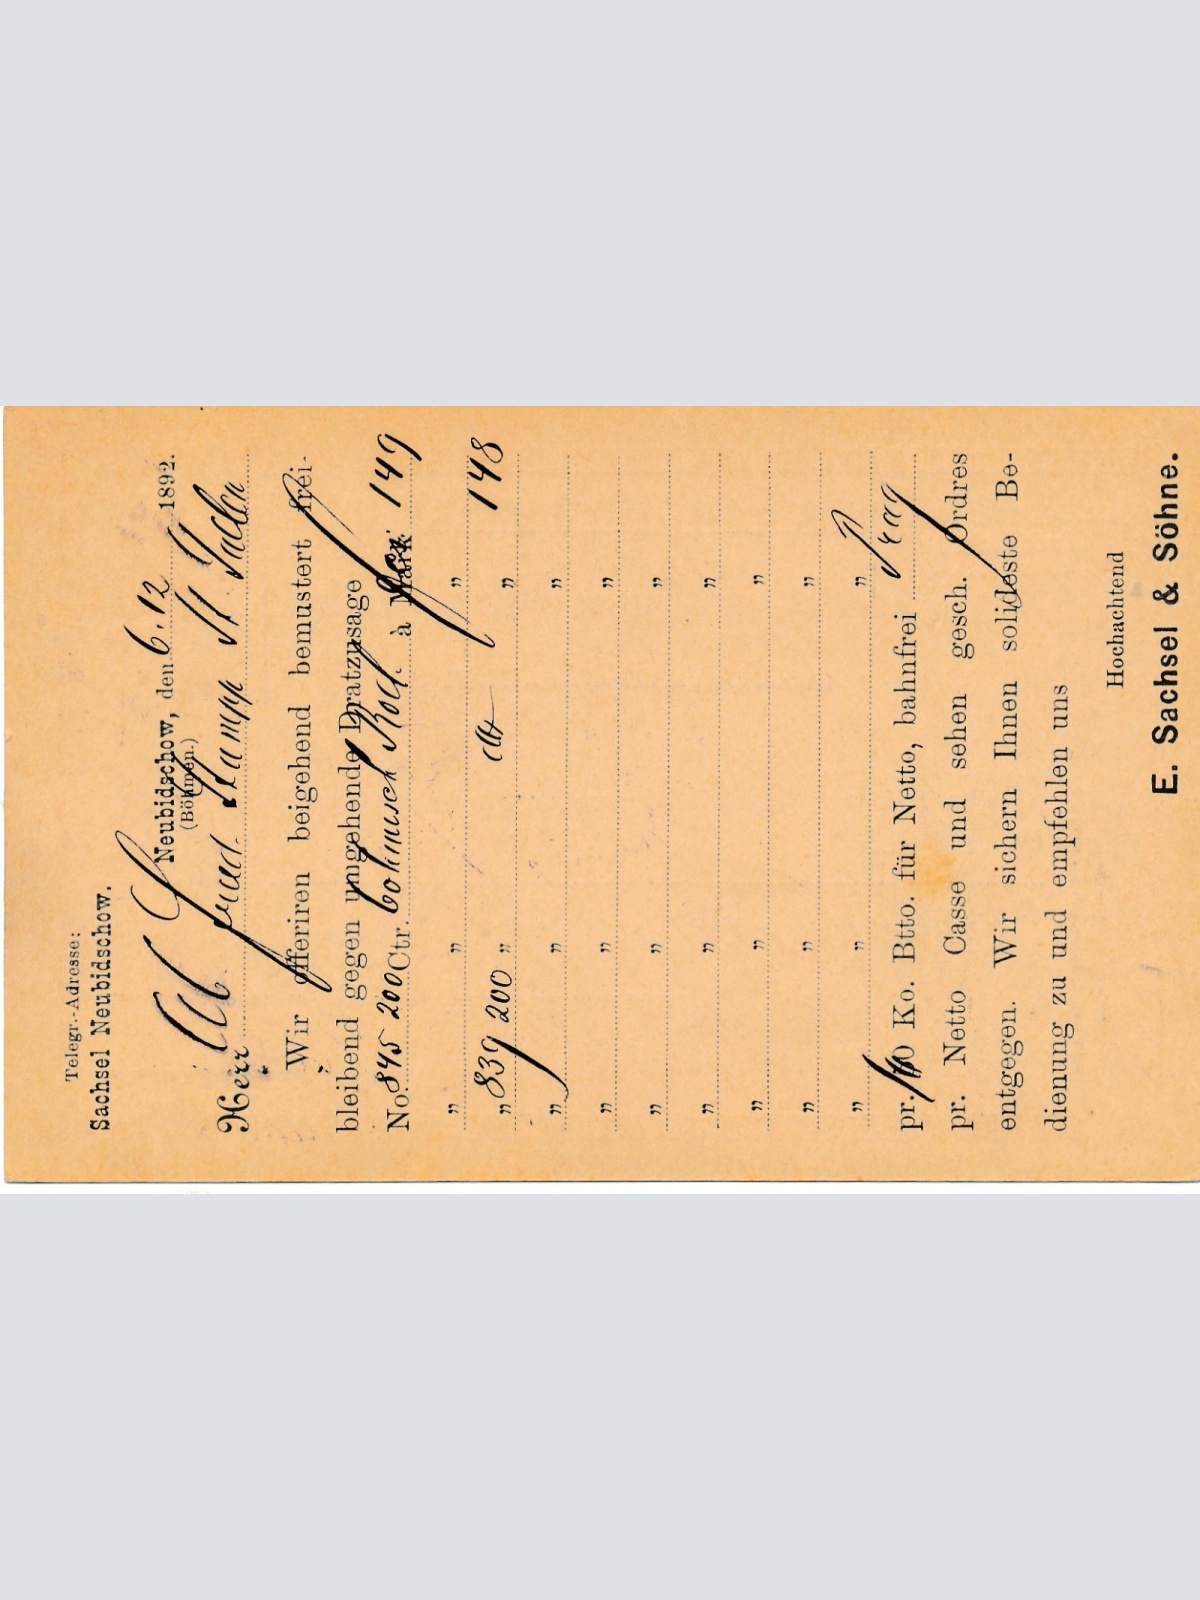 Telegr.-Adresse:
Sachsel Neubidschow.
Neubidschow, den 6.12 1892.
(Böhmen.)
Herr Stumpp St Gallen
Wir offeriren beigehend bemustert frei-
bleibend gegen umgehende Dratzusage
No. 845 200 Ctr. böhmisch à Mark 149
" " "
" 839 200 " dto " 148
" " "
" " "
" " "
" " "
" " "
" " "
" " "
pr. 50 Ko. Btto. für Netto, bahnfrei Prag
pr. Netto Casse und sehen gesch. Ordres
entgegen. Wir sichern Ihnen solideste Be-
dienung zu und empfehlen uns
Hochachtend
E. Sachsel & Söhne.